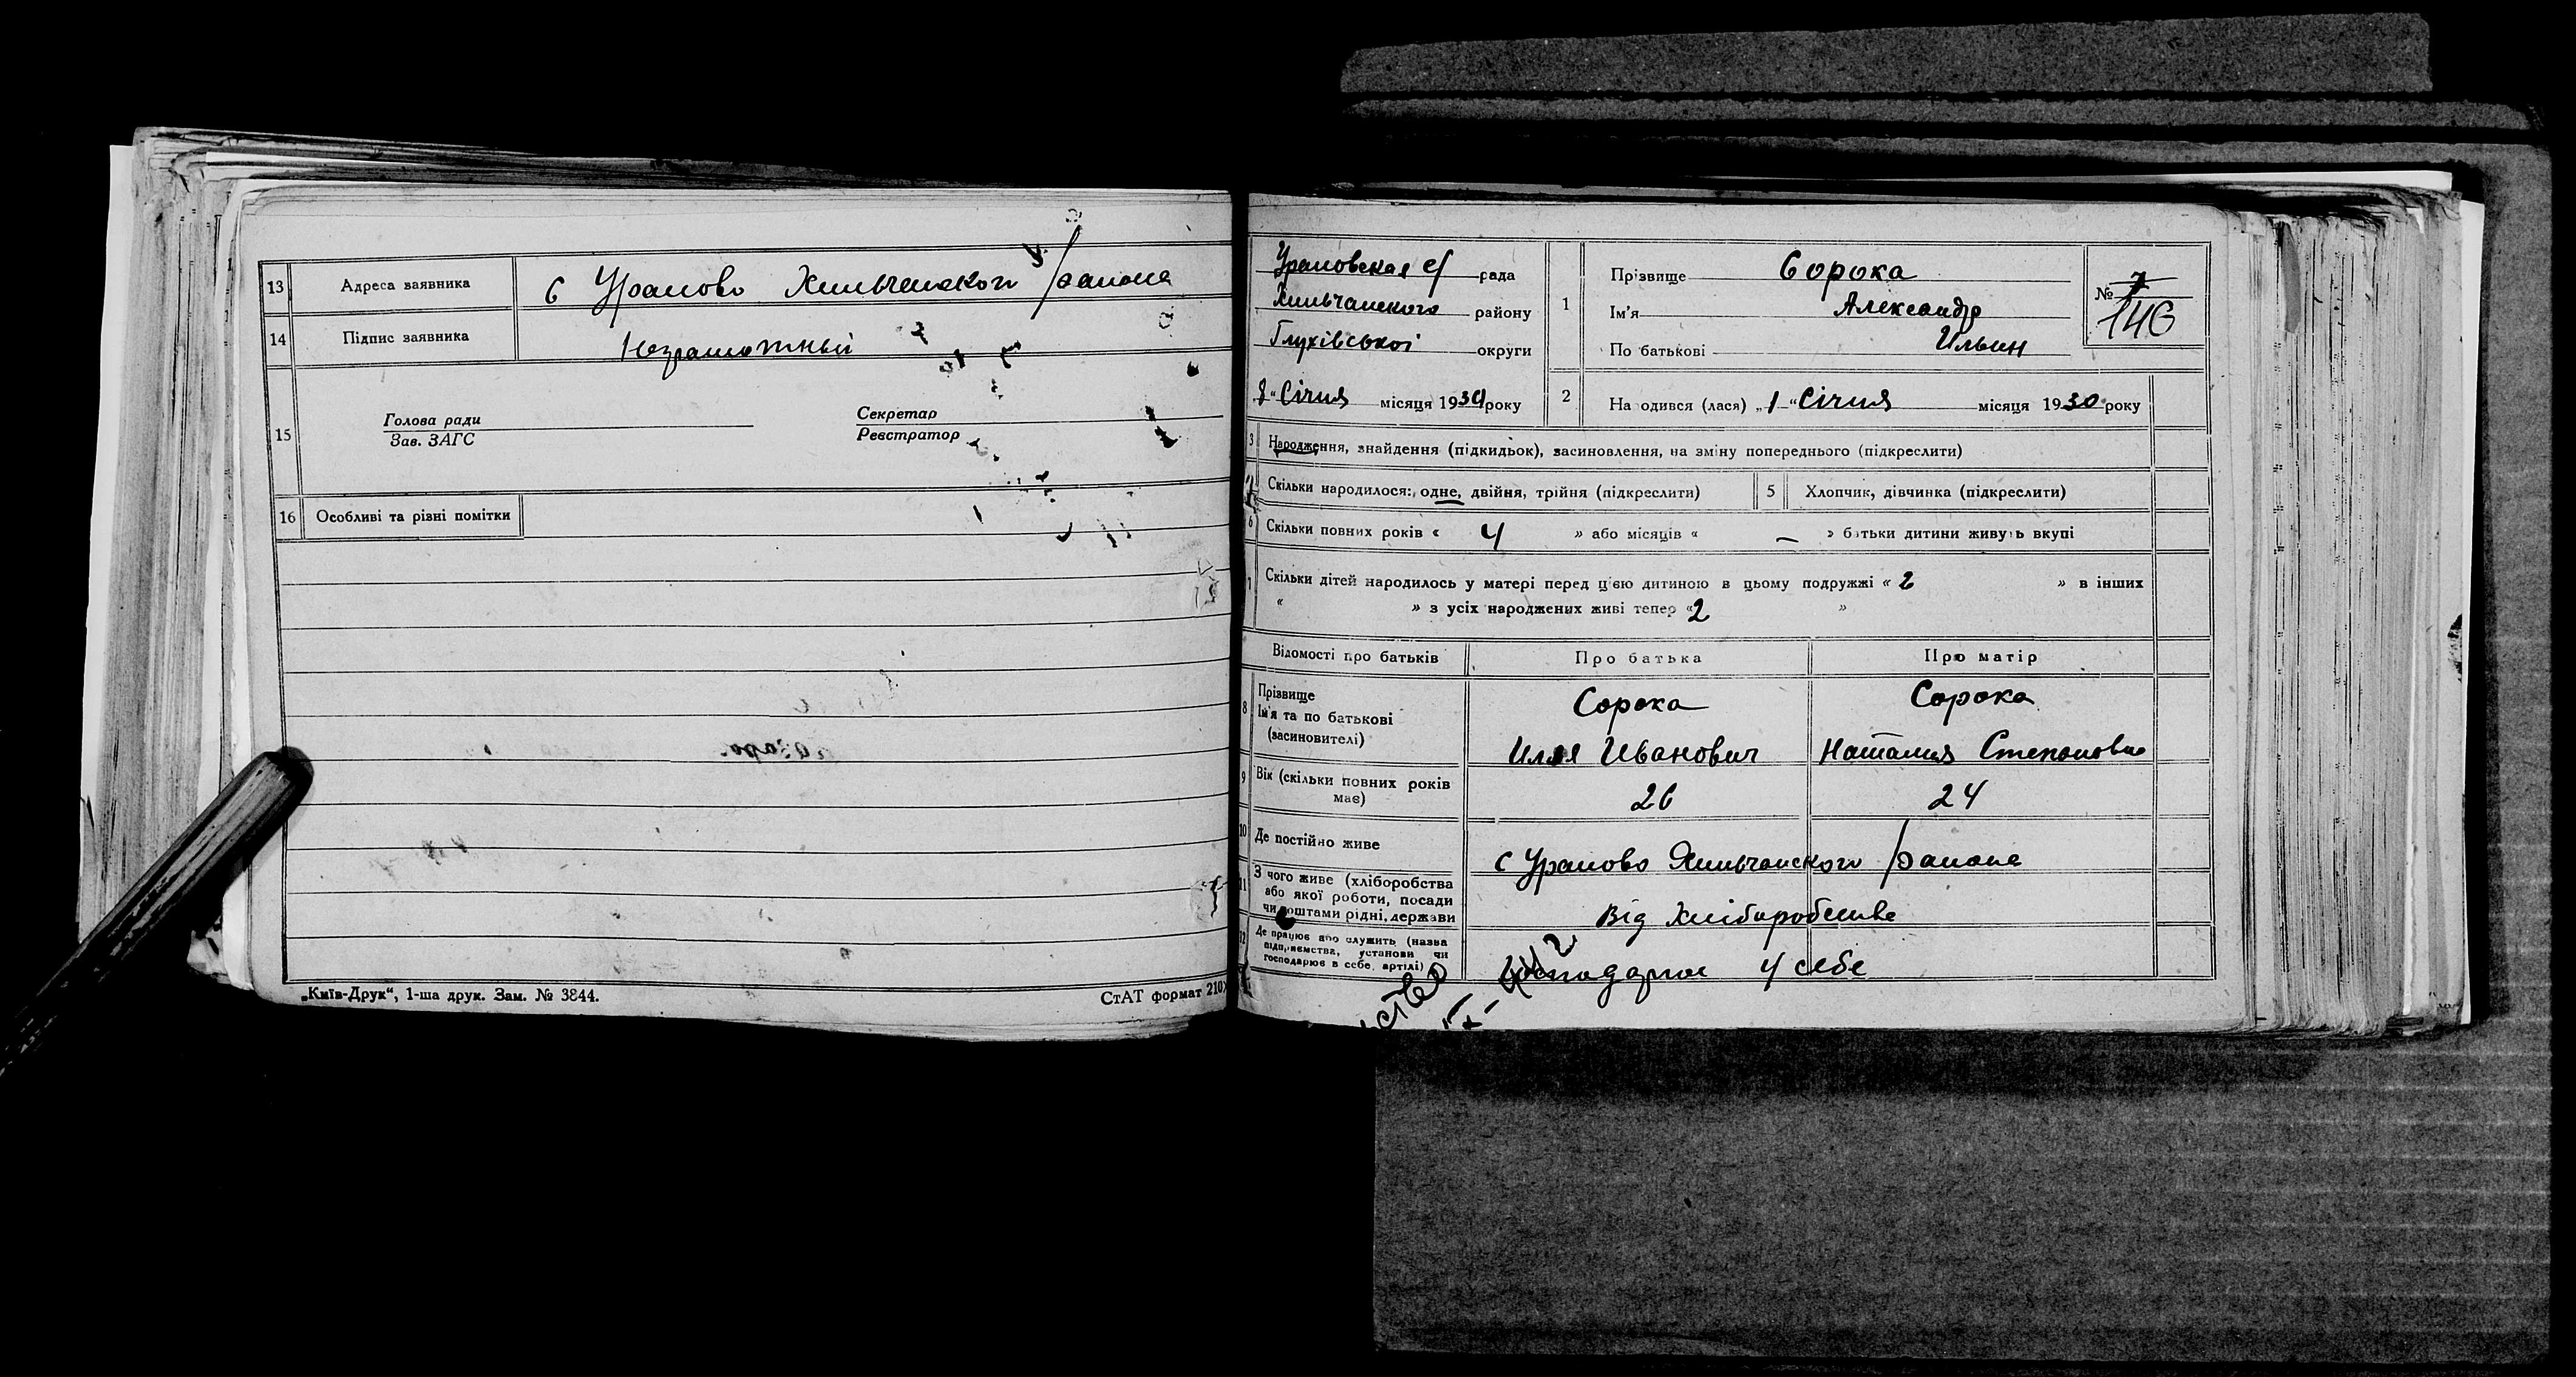 13 Адреса заявника с Уралово Хильчанского района
14 Підпис заявника Неграмотный
15 Голова ради Секретар
Зав. ЗАГС Реєстратор
16 Особливі та різні помітки
„Київ-Друк“, 1-ша друк. Зам. № 3844. СтАТ формат 210
Ураловская с/ рада
Хильчанского району
Глухівської округи
8 “ Січня місяця 1930 року
1 Прізвище Сорока
Ім'я Александр
По батькові Ильич
№ 7
146
2 На одився (лася) „1“ Січня місяця 1930 року
3 Народження, знайдення (підкидьок), засиновлення, на зміну попереднього (підкреслити)
Скільки народилося: одне, двійня, трійня (підкреслити) 5 Хлопчик, дівчинка (підкреслити)
6 Скільки повних років « 4 » або місяців « — » батьки дитини живуть вкупі
7 Скільки дітей народилось у матері перед цією дитиною в цьому подружжі « 2 » в інших
« » з усіх народжених живі тепер « 2 »
Відомості про батьків Про батька Про матір
8 Прізвище Сорока Сорока
Ім'я та по батькові
(засиновителі) Илля Иванович Наталия Степановна
9 Вік (скільки повних років має) 26 24
10 Де постійно живе с Уралово Хильчанского района
11 З чого живе (хліборобства
або якої роботи, посади
чи коштами рідні, держави Від Хліборобства
12 Де працює або служить (назва
підприємства, установи чи
господарює в себе, артілі) Господарює у себе